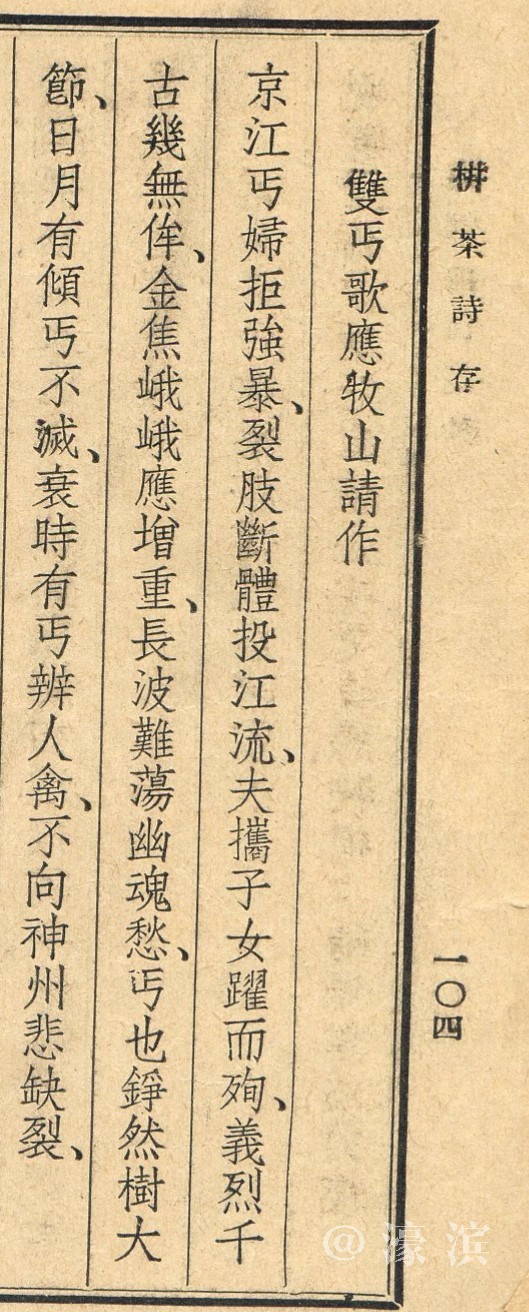 栟茶詩存
一〇四
雙丐歌應牧山請作
京江丐婦拒強暴、裂肢斷體投江流、夫攜子女躍而殉、義烈千
古幾無侔、金焦峨峨應增重、長波難蕩幽魂愁、丐也錚然樹大
節、日月有傾丐不滅、衰時有丐辨人禽、不向神州悲缺裂、
@濠滨